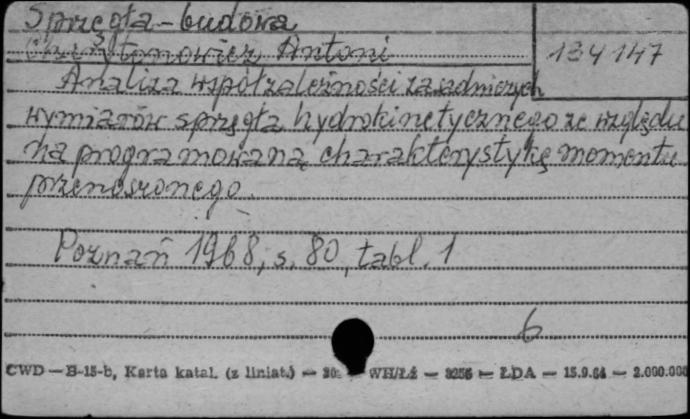 Sprzęgła - budowa
Antoni
134147
Analiza współzależności zasadniczych
wymiarów sprzęgła hydrokinetycznego ze względu
na programowaną charakterystykę momentu
przenoszonego.
Poznań 1968, s. 80, tabl. 1
6
CWD — B-15-b, Karta katal. (z liniat.) — WH/Łź — 3256 — ŁDA — 15.9.64 — 2.000.000